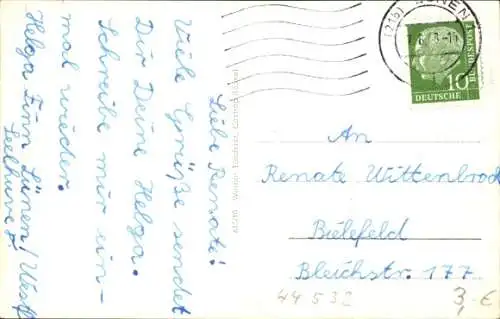 Liebe Renate!
Viele Grüße sendet
Dir Deine Helga.
Schreibe mir ein-
mal wieder.
Helga Finn Lünen/Westf
(21b) LÜNEN
10
DEUTSCHE
BUNDESPOST
An
Renate Wittenbrock
Bielefeld
Bleichstr. 177
44 532
3,-€